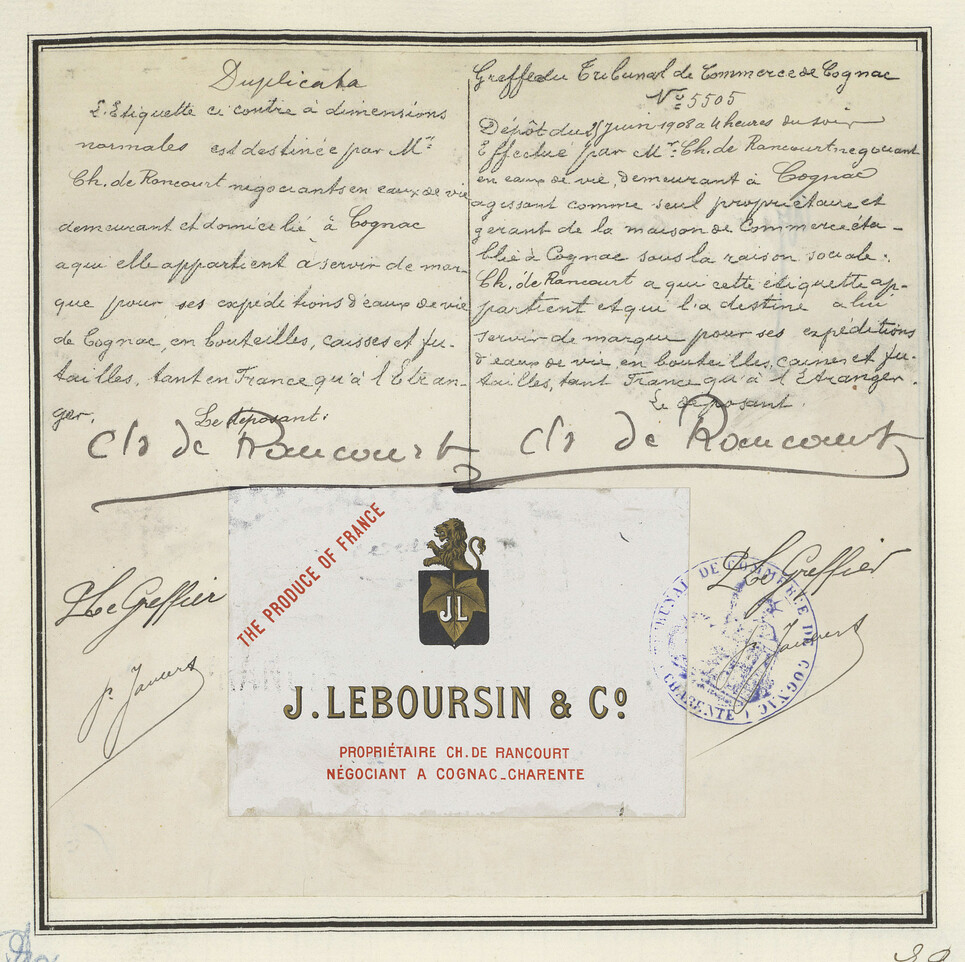 Duplicata
L'Etiquette ci contre à dimensions
normales est destinée par Mr
Ch. de Rancourt négociants en eaux de vie
demeurant et domicilié à Cognac
a qui elle appartient a servir de mar-
que pour ses expéditions d'eaux de vie
de Cognac, en bouteilles, caisses et fu-
tailles, tant en France qu'à l'Etran-
ger.
Le déposant:
Ch de Rancourt
Le Greffier
Greffe du Tribunal de Commerce de Cognac
No 5505
Dépôt du Juin 1908 a 4 heures du soir
Effectué par Mr Ch. de Rancourt négociant
en eaux de vie, demeurant à Cognac
agissant comme seul propriétaire et
gérant de la maison de Commerce éta-
blie à Cognac sous la raison sociale:
Ch. de Rancourt a qui cette étiquette ap-
partient et qui l'a destine à lui
servir de marque pour ses expéditions
d'eaux de vie, en bouteilles, caisses et fu-
tailles, tant France qu'à l'Etranger.
Le déposant.
Ch de Rancourt
Le Greffier
THE PRODUCE OF FRANCE
JL
J. LEBOURSIN & Co
PROPRIÉTAIRE CH. DE RANCOURT
NÉGOCIANT A COGNAC_CHARENTE
TRIBUNAL DE COMMERCE DE COGNAC
CHARENTE